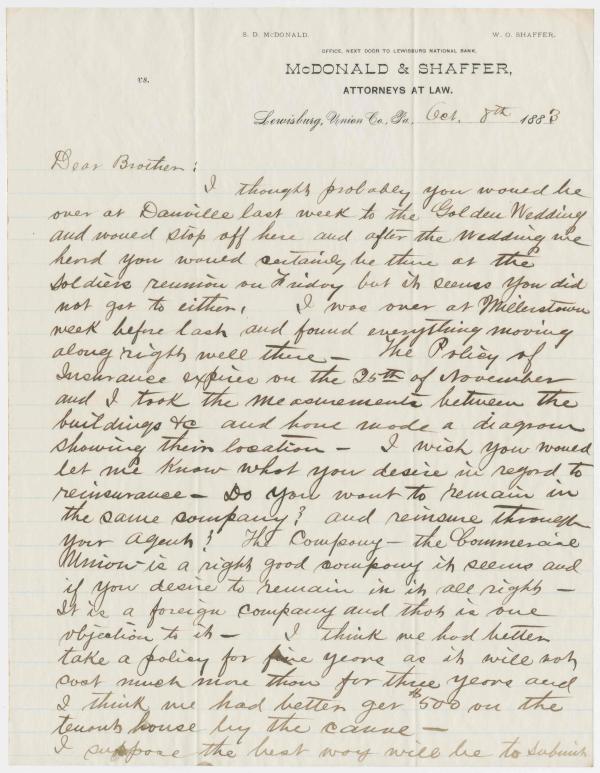 S. D. McDONALD. W. O. SHAFFER.
OFFICE, NEXT DOOR TO LEWISBURG NATIONAL BANK.
McDONALD & SHAFFER,
vs.
ATTORNEYS AT LAW.
Lewisburg, Union Co., Pa., Oct. 8th 1883
Dear Brother:
I thought probably you would be
over at Danville last week to the Golden Wedding
and would stop off here and after the Wedding we
heard you would certainly be there at the
Soldiers reunion on Friday but it seems you did
not get to either. I was over at Millerstown
week before last and found everything moving
along right well there — The Policy of
Insurance expires on the 25th of November
and I took the measurements between the
buildings &c and have made a diagram
showing their location — I wish you would
let me know what you desire in regard to
reinsurance — Do you want to remain in
the same company? and reinsure through
your agent? The Company — the Commercial
Union — is a right good company it seems and
if you desire to remain in it all right —
It is a foreign company and that is one
objection to it — I think we had better
take a policy for five years as it will not
cost much more than for three years and
I think we had better get $500 on the
tenant house by the canal —
I suppose the best way will be to submit